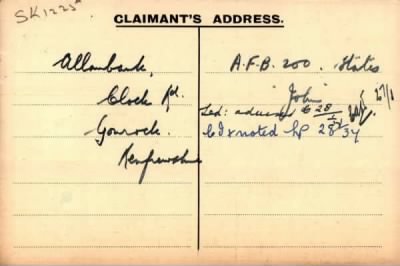 SK1223A
CLAIMANT'S ADDRESS.
Allanbank,
Cloch Rd.
Gourock.
Renfrewshire
A.F.B. 200. States
"John" 27/1
Led: advised 28/1/34
C.I x noted 28/2/34